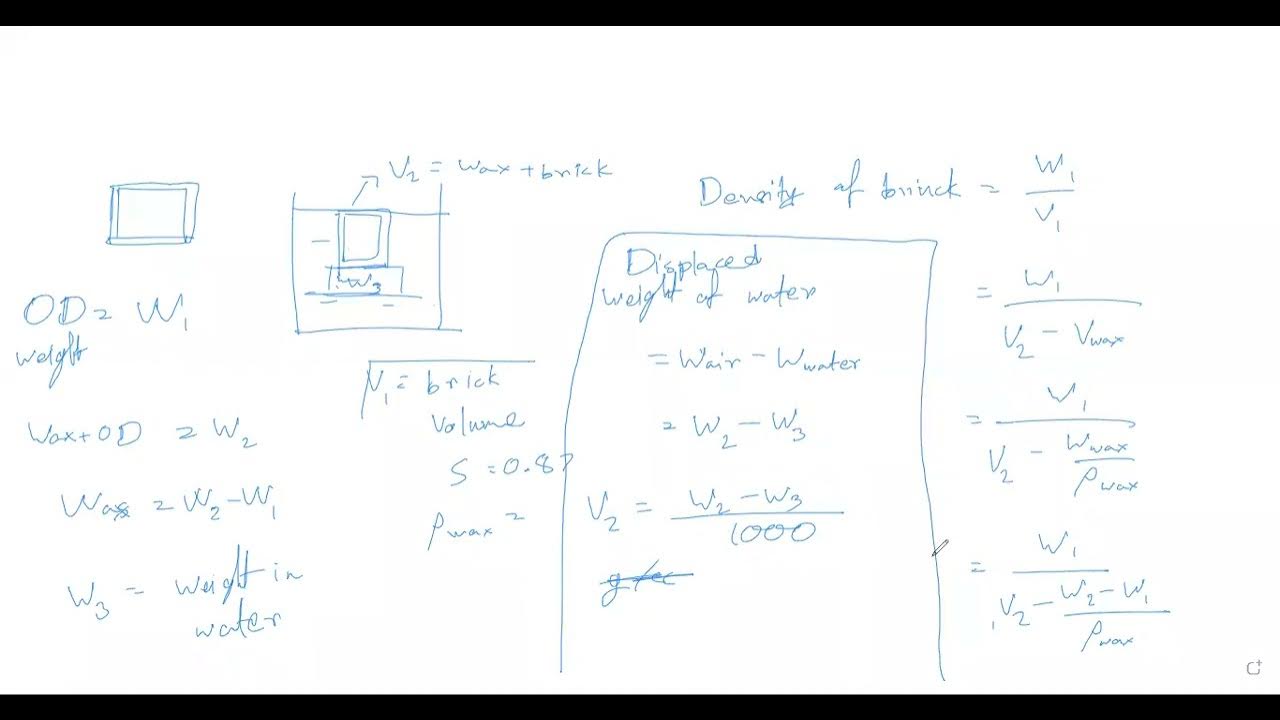 V₂ = wax + brick
W₃
OD = W₁
weight
Wax + OD = W₂
Wax = W₂ - W₁
W₃ = weight in
water
V₁ = brick
volume
S = 0.87
ρwax =
Displaced
weight of water
= Wair - Wwater
= W₂ - W₃
V₂ = (W₂ - W₃) / 1000
Density of brick = W₁ / V₁
= W₁ / (V₂ - Vwax)
= W₁ / (V₂ - Wwax / ρwax)
= W₁ / (V₂ - (W₂ - W₁) / ρwax)